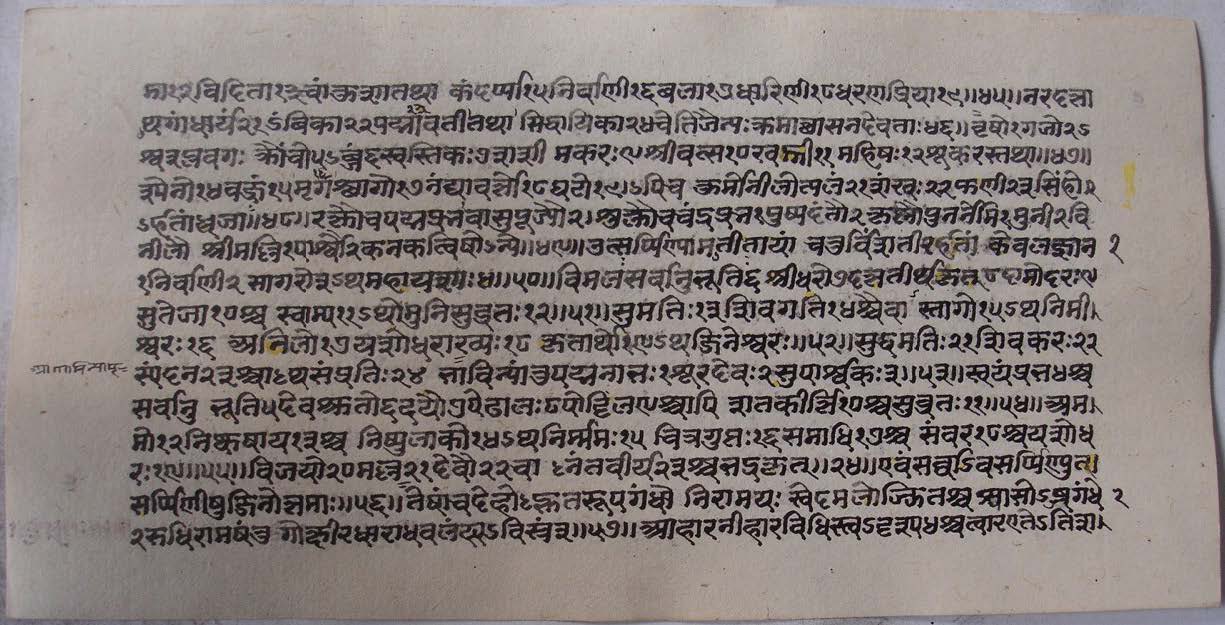 ता१२विदिता१३चांकुशातथा कंदर्प्पा१५निर्वाणी१६बला१७धारिणी१८धरणप्रिया१९॥४५॥नरदत्ता
थगांधार्य२१ऽंबिका२२पद्मावतीतथा सिद्धायिका२४चेतिजैन्यःक्रमाच्छासनदेवताः४६॥वृषो१गजो२ऽ
श्वः३प्लवगः क्रौंचो५ऽब्जं६स्वस्तिकः७शशी मकरः९श्रीवत्सः१०खड्गी११महिषः१२शूकरस्तथा॥४७॥
श्येनो१४वज्रं१५मृगश्छागो१७नंद्यावर्त्तो१८घटो१९ऽपिच कूर्मोनीलोत्पलं२१शंखः२२फणी२३सिंहो
ऽर्हतांध्वजाः॥४८॥रक्तौचपद्मप्रभवासुपूज्यौ२शुक्लौचचंद्रप्रभपुष्पदंतौ२कृष्णौपुनर्नेमिमुनी२वि
नीलौ श्रीमल्लिपार्श्वौ२कनकत्विषोऽन्ये॥४९॥उत्सर्प्पिण्यामतीतायां चतुर्विंशतिरर्हतां केवलज्ञान १
१निर्वाणी२सागरो३ऽथमहायशाः४॥५०॥विमलःसर्वानुभूति६श्रीधरो७दत्ततीर्थकृत्८दामोदरः९
सुतेजा१०श्च स्वाम्य११ऽथोमुनिसुव्रतः१२॥५१॥सुमतिः१३शिवगति१४श्चैवा स्तागो१५ऽथनिमी
श्वरः१६ अनिलो१७यशोधराख्यः१८ कृतार्थो१९ऽथजिनेश्वरः॥५२॥शुद्धमतिः२१शिवकरः२२
स्यंदन२३श्चाऽथसंप्रतिः२४ भाविन्यांतुपद्मनाभः१शूरदेवः२सुपार्श्वकः३॥५३॥स्वयंप्रभ४श्च
सर्वानु भूति५देवश्रुतो६दयौ७पेढालः८पोट्टिल९श्चापि शतकीर्त्ति१०श्चसुव्रतः११॥५४॥अम
मो१२निष्कषाय१३श्च निष्पुलाको१४ऽथनिर्म्ममः१५ चित्रगुप्तः१६समाधि१७श्च संवर१८श्चयशोध
रः१९॥५५॥विजयो२०मल्ल२१देवौ२२चा नंतवीर्य२३श्चभद्रकृत्॥२४॥एवंसर्वाऽवसर्प्पिण्युत्
सर्प्पिणीषुजिनोत्तमाः॥५६॥तेषांचदेहोऽद्भुतरूपगंधो निरामयः स्वेदमलोज्झितश्च श्वासोऽब्जगंधो २
रुधिरामिषंतु गोक्षीरधाराधवलंह्यऽविस्रं३॥५७॥आहारनीहारविधिस्त्वऽदृश्य४श्चत्वारएतेऽतिशा